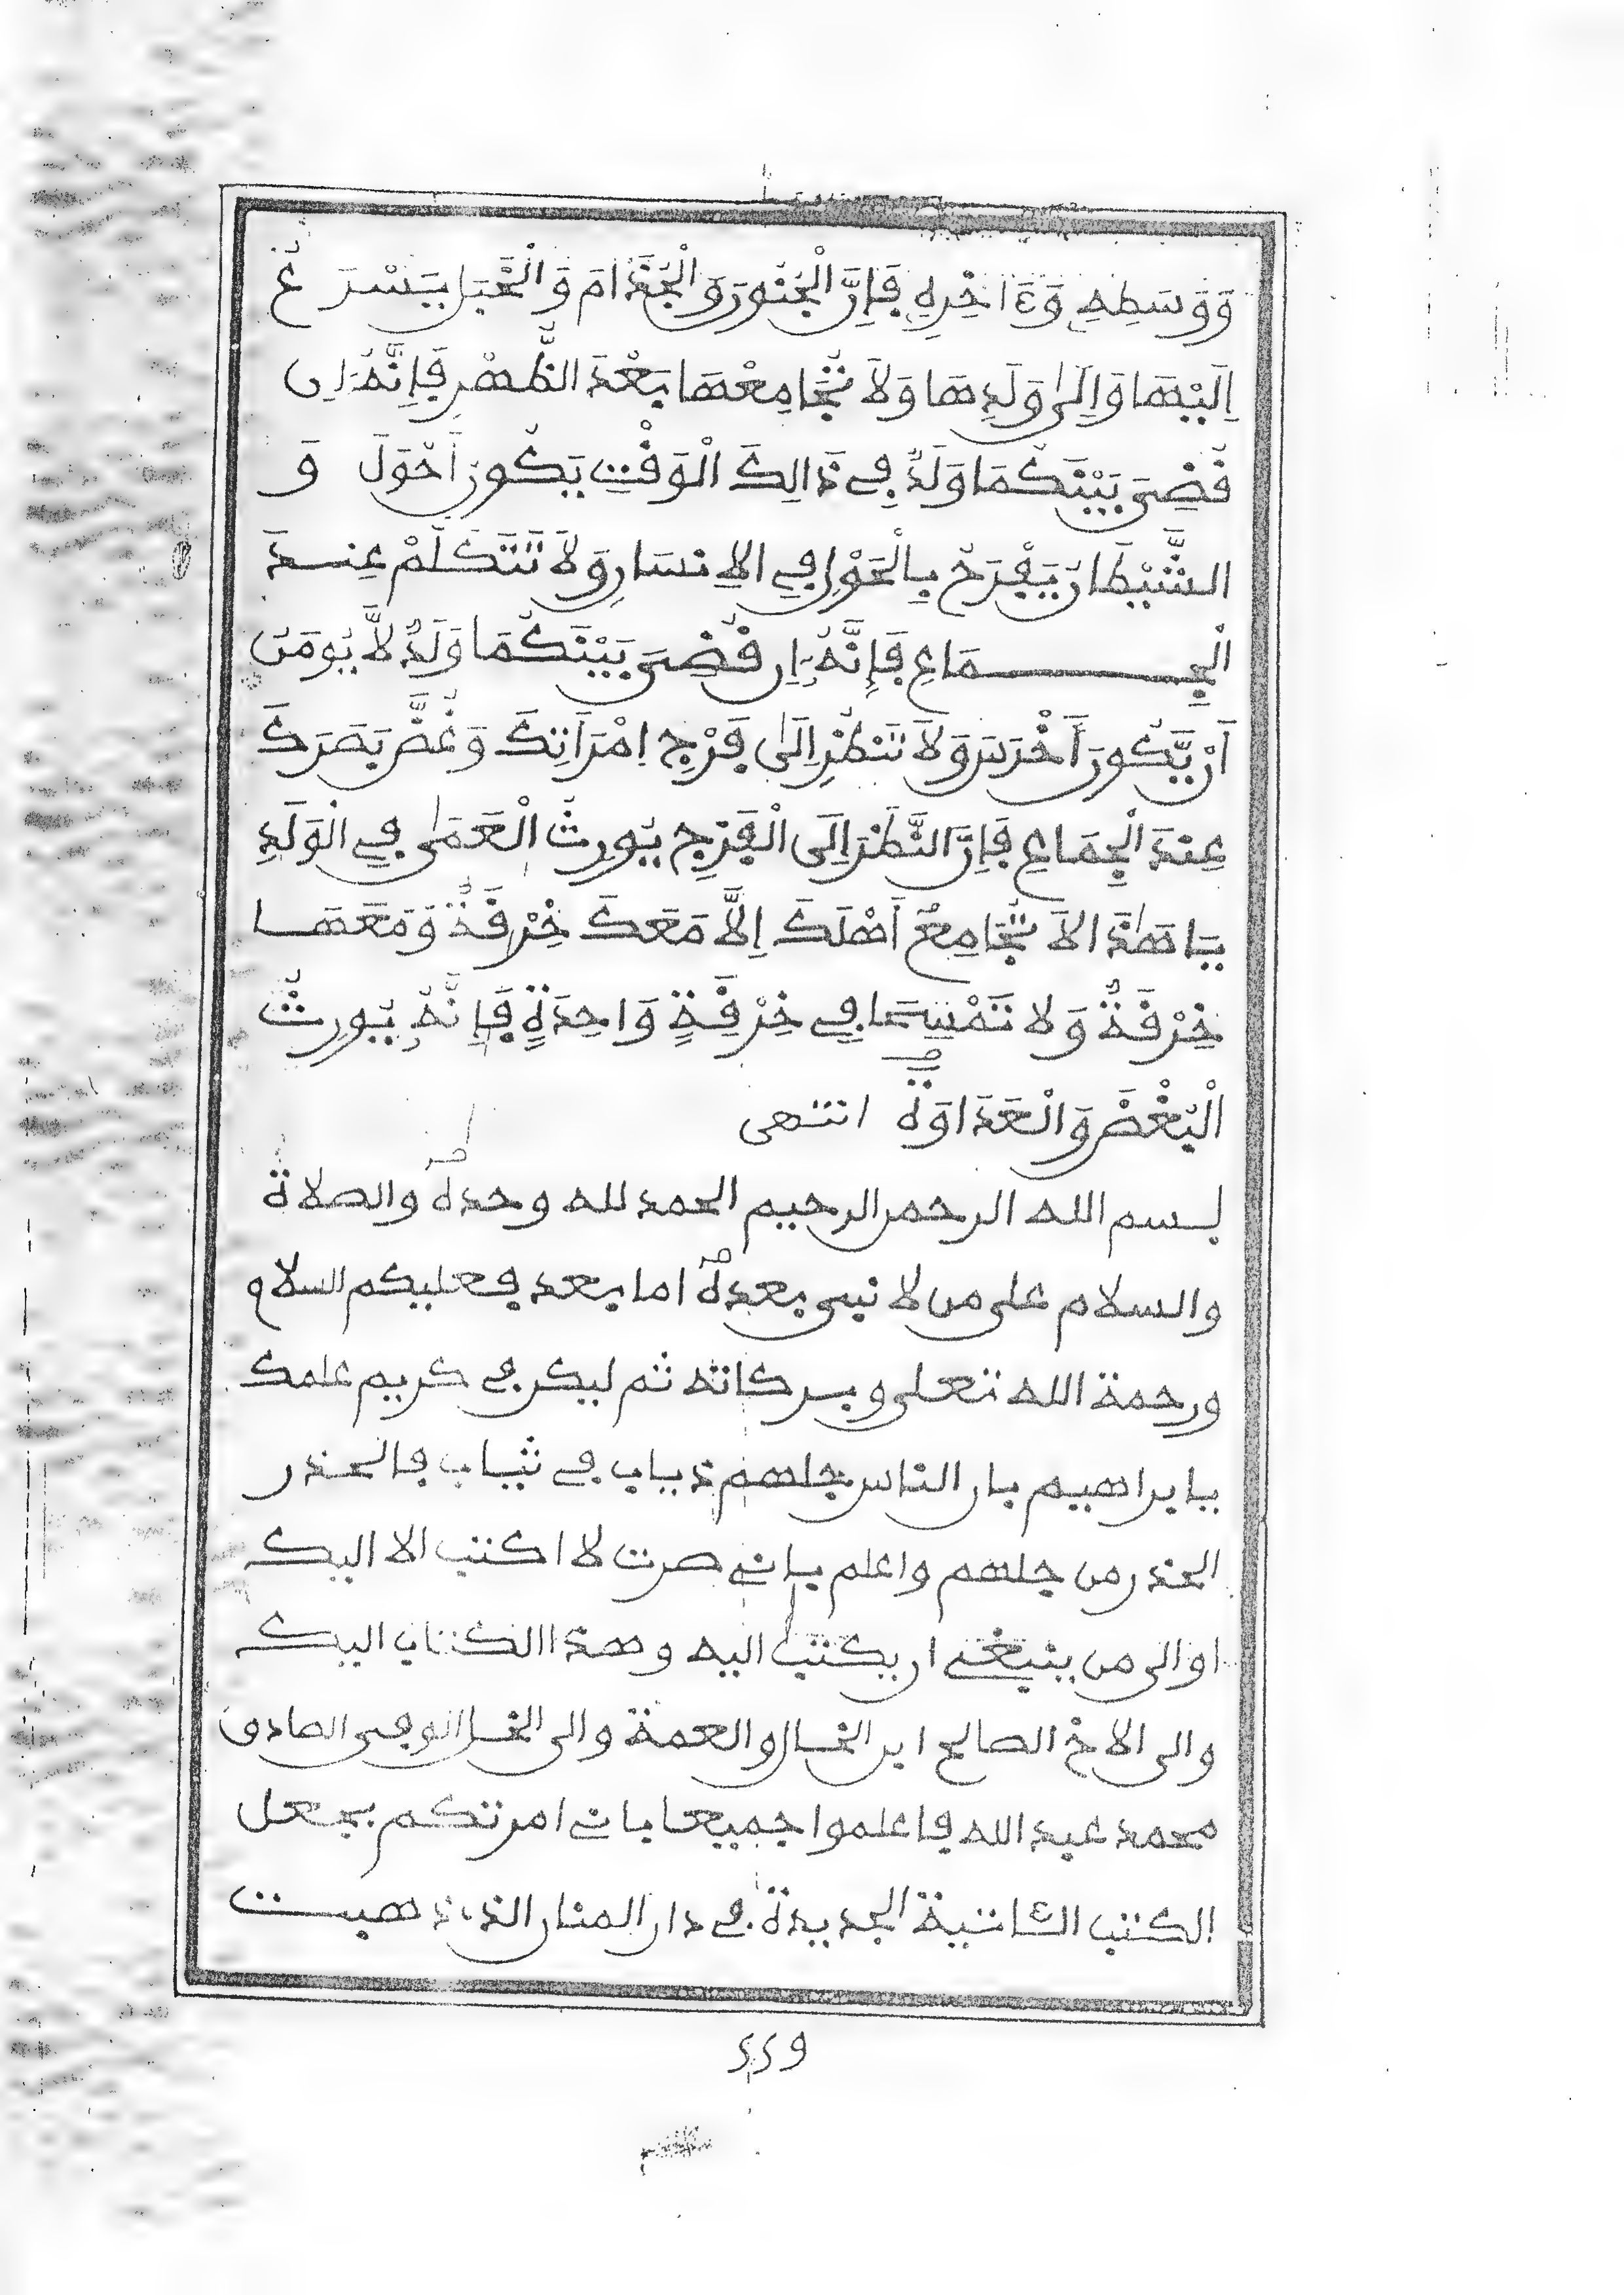 وَوَسَطِهِ وَءَاخِرِهِ فَإِنَّ الْجُنُونَ وَالْجُذَامَ وَالْخَبَلَ يَسْرَعُ
إِلَيْهَا وَإِلَىٰ وَلَدِهَا وَلَا تُجَامِعْهَا بَعْدَ الظُّهْرِ فَإِنَّهُ إِن
قُضِيَ بَيْنَكُمَا وَلَدٌ فِي ذَالِكَ الْوَقْتِ يَكُونُ أَحْوَلَ وَ
الشَّيْطَانُ يَفْرَحُ بِالْحَوَلِ فِي الْإِنسَانِ وَلَا تَتَكَلَّمْ عِندَ
الْجِمَاعِ فَإِنَّهُ إِن قُضِيَ بَيْنَكُمَا وَلَدٌ لَّا يُومَنُ
أَنْ يَّكُونَ أَخْرَسَ وَلَا تَنْظُرْ إِلَىٰ فَرْجِ امْرَأَتِكَ وَغُضَّ بَصَرَكَ
عِنْدَ الْجِمَاعِ فَإِنَّ النَّظْرَ إِلَى الْفَرْجِ يُورِثُ الْعَمَىٰ فِي الْوَلَدِ
يَا هَٰذَا لَا تُجَامِعْ أَهْلَكَ إِلَّا مَعَكَ خِرْقَةٌ وَمَعَهَا
خِرْقَةٌ وَلَا تَمْسَحَا فِي خِرْقَةٍ وَاحِدَةٍ فَإِنَّهُ يُورِثُ
الْبُغْضَ وَالْعَدَاوَةَ انتهى
بسم الله الرحمن الرحيم الحمد لله وحده والصلاة
والسلام على من لا نبي بعده اما بعد فعليكم السلام
ورحمة الله تعلى وبركاته ثم ليكن في كريم علمك
يا براهيم بان الناس جلهم ذياب في ثياب فالحذر
الحذر من جلهم واعلم باني صرت لا اكتب الا اليك
او الى من ينبغي ان يكتب اليه وهذا الكتاب اليك
والى الاخ الصالح ابن الخال والعمة والى الخل الوفي الصادق
محمد عبد الله فاعلموا جميعا باني امرتكم بجعل
الكتب الثانية الجديدة في دار المنار الذي ذهبت
٢٢٩